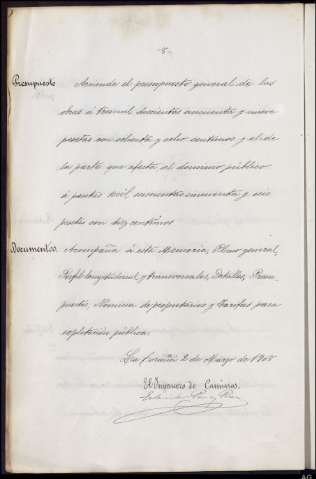 8
Presupuesto Asciende el presupuesto general de las
obras á tresmil doscientas cincuenta y nueve
pesetas con ochenta y ocho centimos y el de
la parte que afecta al dominio público
á pesetas mil, cincuenta y seis
pesetas con diez centimos
Documentos. Acompaña á esta Memoria, Plano general,
Perfil longitudinal y transversales, Detalles, Presu-
puesto, Nomina de propietarios y Tarifas para
esplotación pública.
La Coruña 2 de Marzo de 1908
El Ingeniero de Caminos,
AG